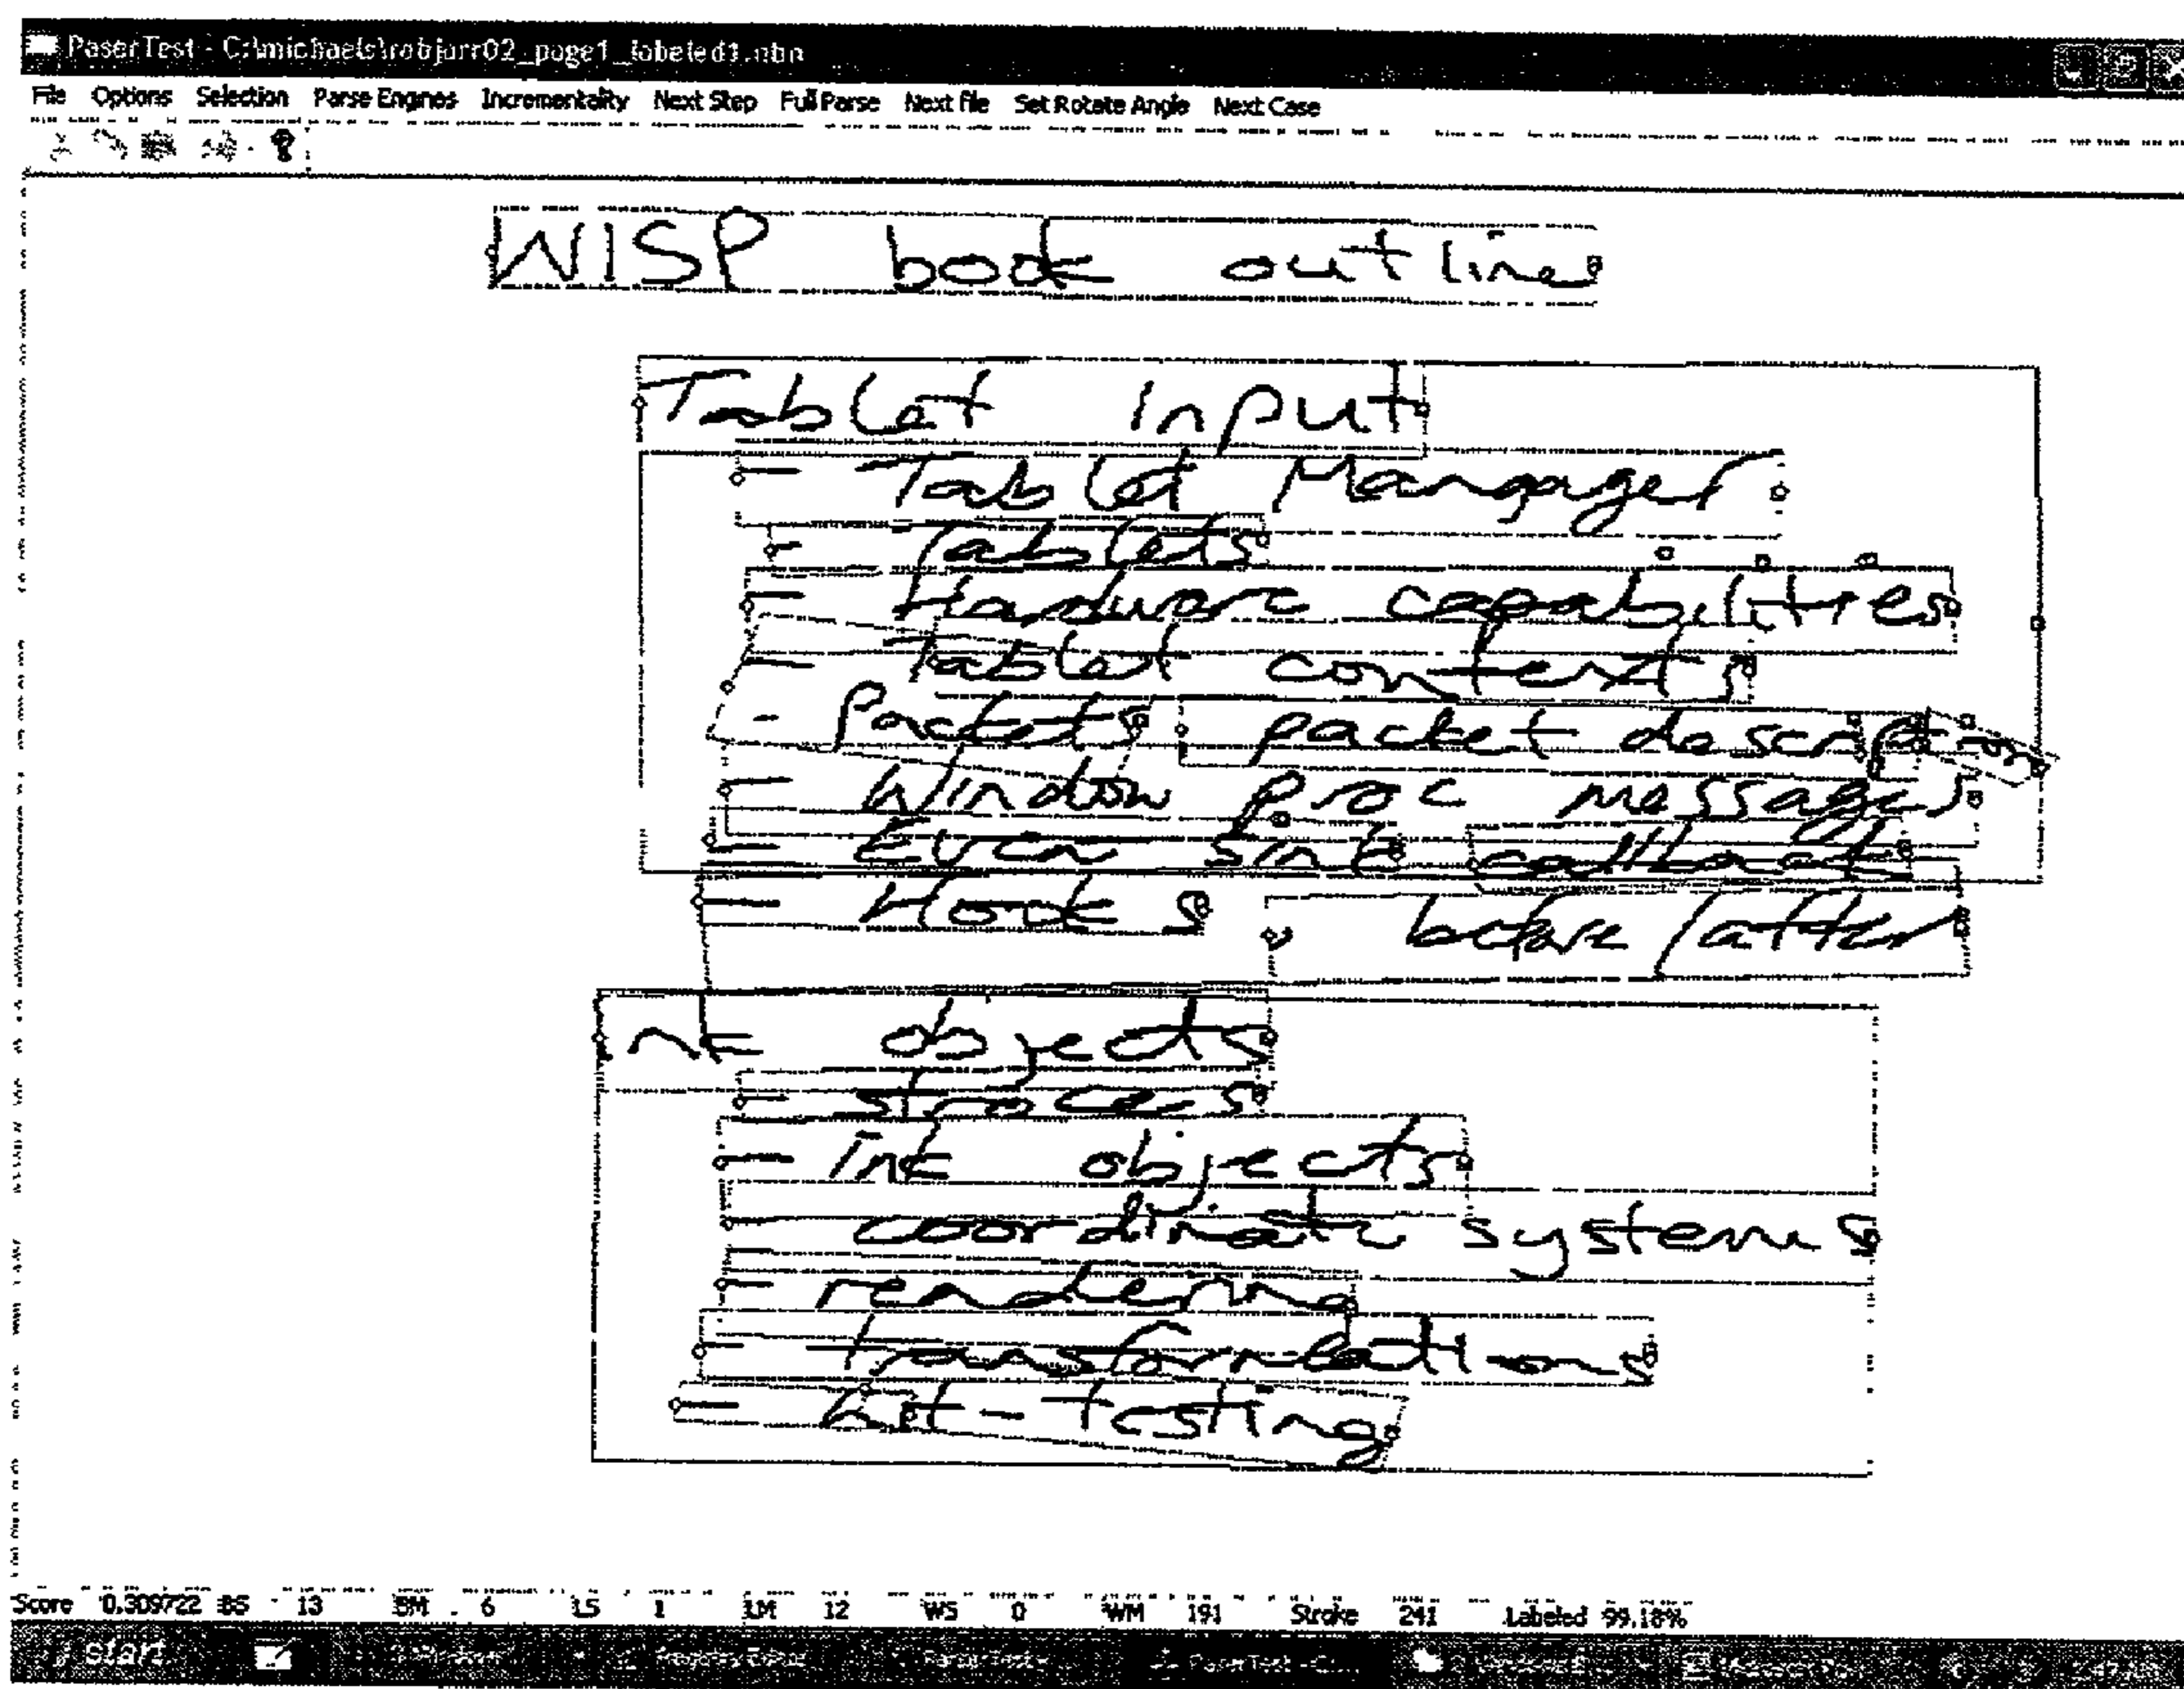 PaserTest - C:\michaels\robjurr02_page1_labeled1.nbn
File Options Selection Parse Engines Incrementality Next Step Full Parse Next file Set Rotate Angle Next Case
WISP book outline
Tablet Input
- Tablet Mangager
- Tablets
- Hardware capabilities
- Tablet contexts
- Packets packet description
- Window proc messages
- Even sink callback
- Hooks before/after
Ink objects
- strokes
- Ink objects
- coordinate systems
- rendering
- transformations
- Hit-testing
Score 0.309722 BS 13 BM 6 LS 1 LM 12 WS 0 WM 191 Stroke 241 Labeled 99.18%
start